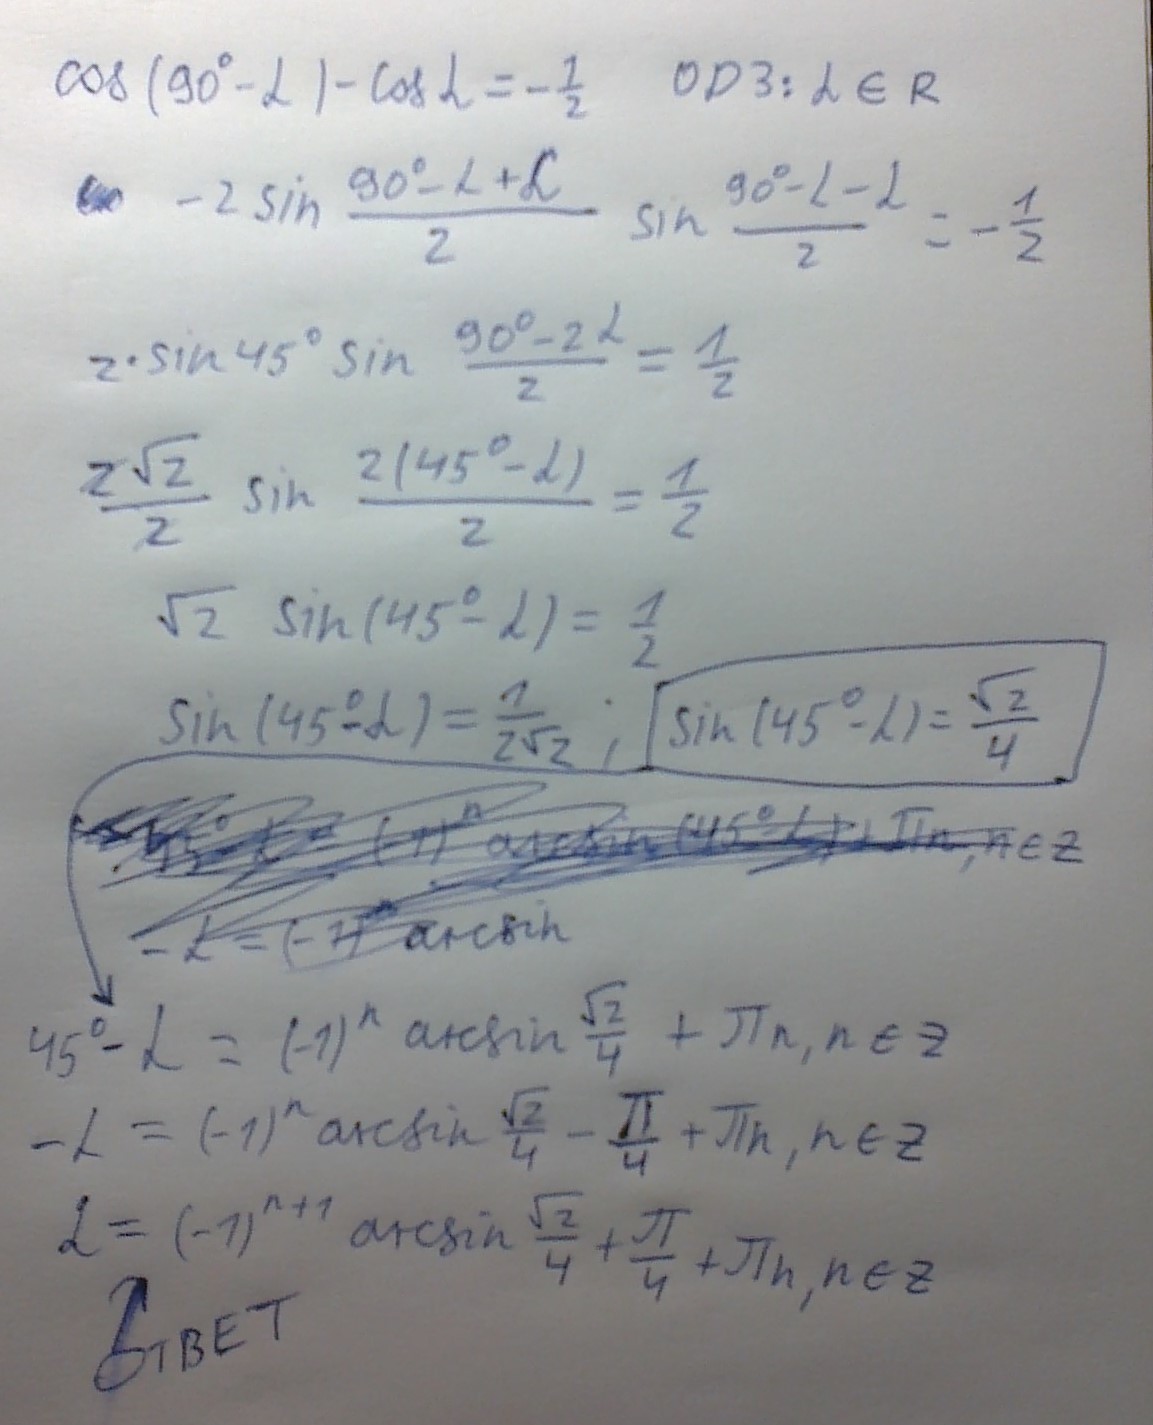 cos(90°-α)-cosα=-1/2 ОДЗ: α∈R
-2 sin (90°-α+α)/2 sin (90°-α-α)/2 = -1/2
2·sin45° sin (90°-2α)/2 = 1/2
2√2/2 sin 2(45°-α)/2 = 1/2
√2 sin(45°-α) = 1/2
sin(45°-α) = 1/2√2 ; sin(45°-α) = √2/4
45°-α = (-1)ⁿ arcsin(45°-α)+πn, n∈z
-α = (-1)ⁿ arcsin
45°-α = (-1)ⁿ arcsin √2/4 + πn, n∈z
-α = (-1)ⁿ arcsin √2/4 - π/4 + πn, n∈z
α = (-1)ⁿ⁺¹ arcsin √2/4 + π/4 + πn, n∈z
ОТВЕТ